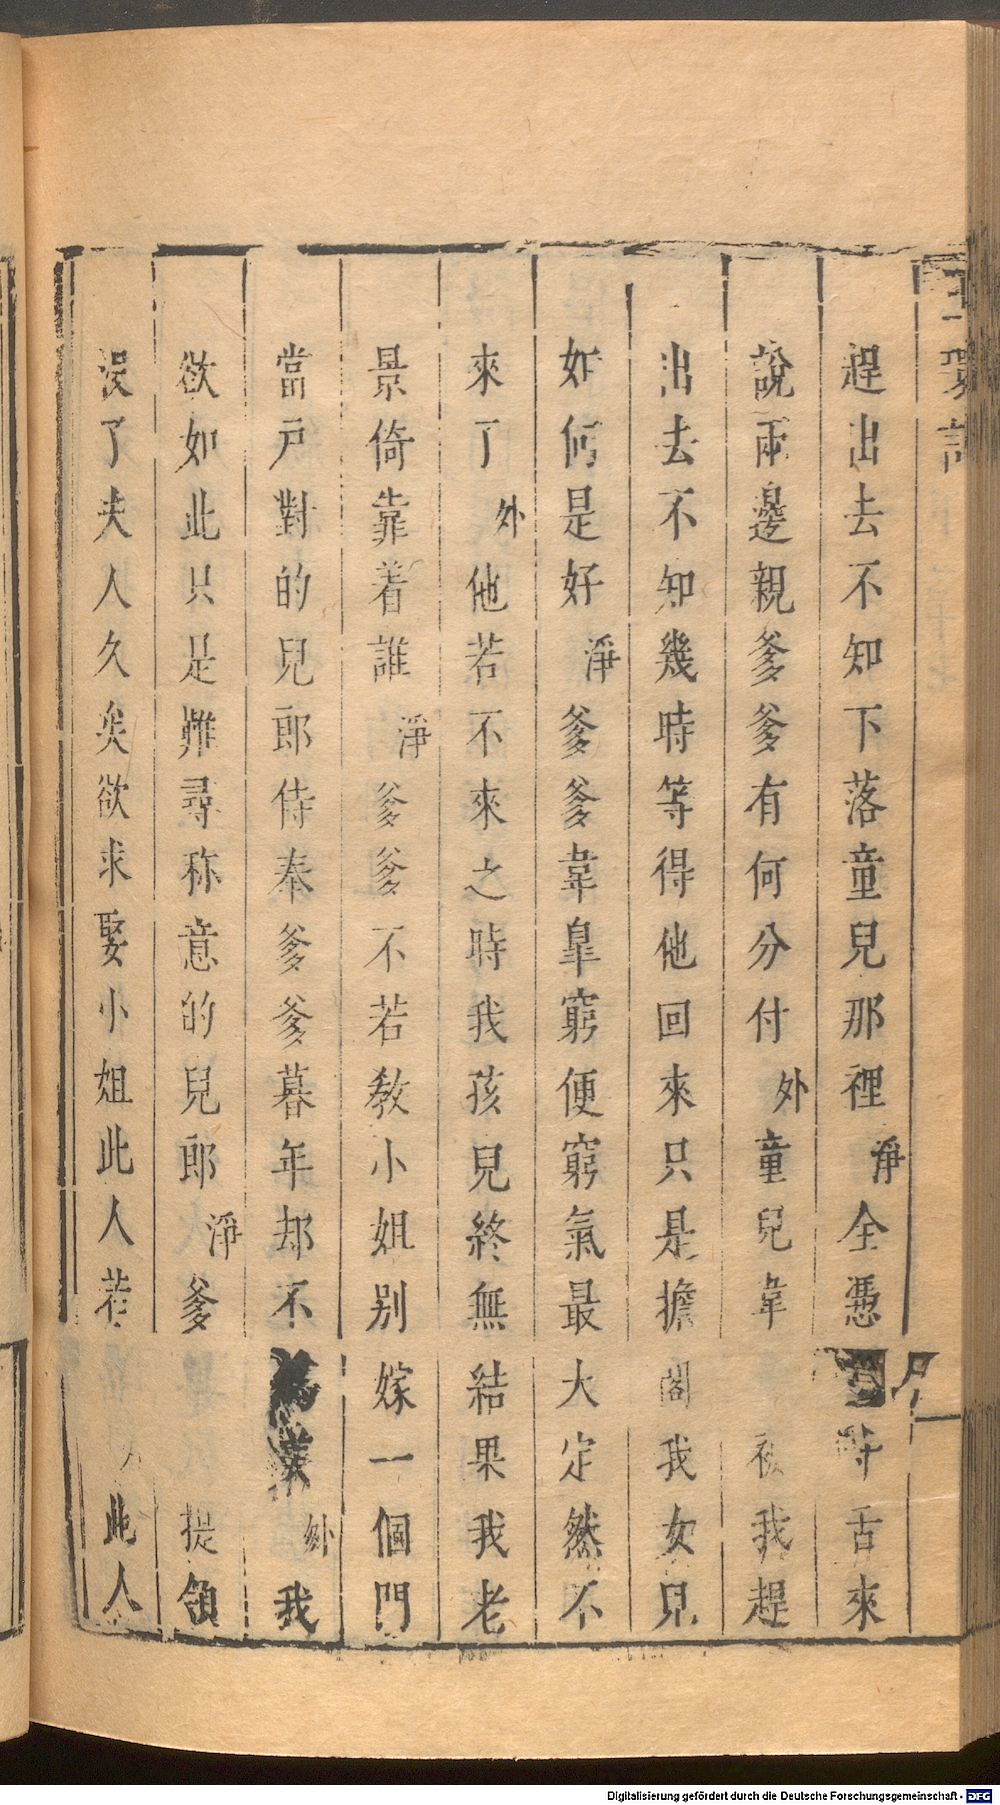 玉環記
趕出去不知下落童兒那裡淨全憑寸舌來
說兩邊親爹爹有何分付外童兒韋被我趕
出去不知幾時等得他回來只是擔閣我女兒
如何是好淨爹爹韋臯窮便窮氣最大定然不
來了外他若不來之時我孩兒終無結果我老
景倚靠着誰淨爹爹不若教小姐别嫁一個門
當戸對的兒郎侍奉爹爹暮年却不爲美外我
欲如此只是難尋称意的兒郎淨爹提領
没了夫人久矣欲求娶小姐此人若此人
Digitalisierung gefördert durch die Deutsche Forschungsgemeinschaft - DFG